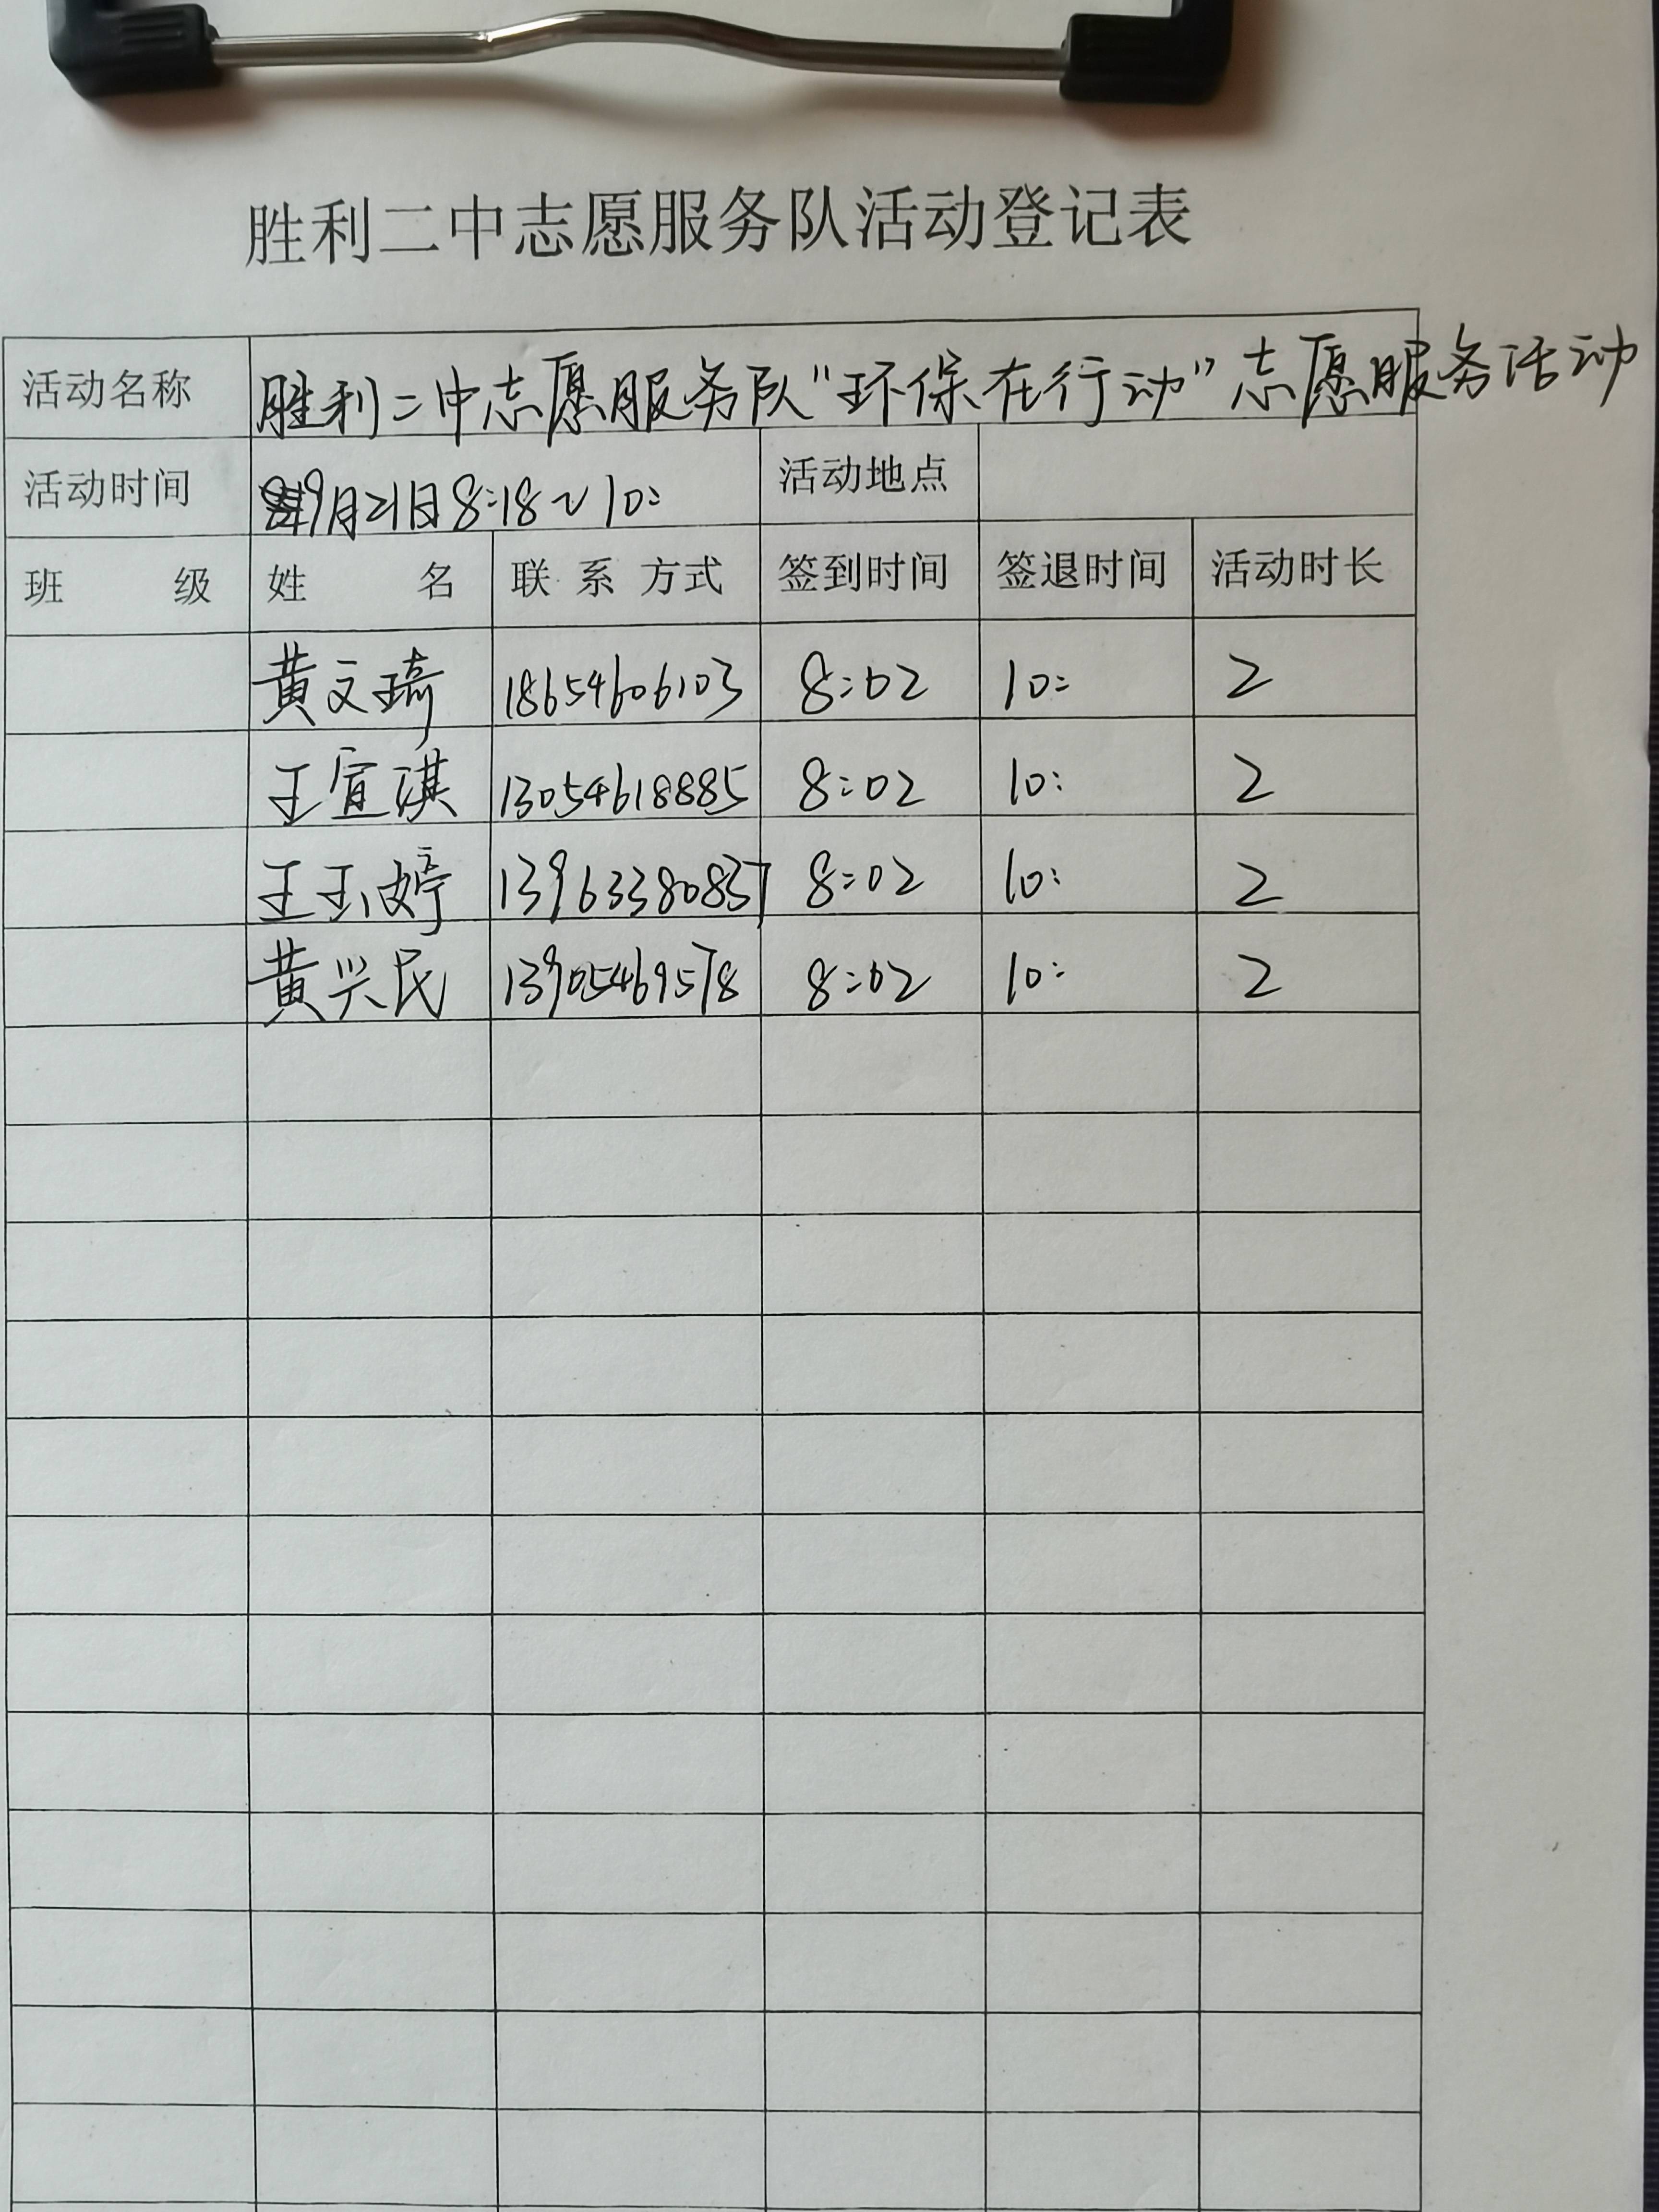 胜利二中志愿服务队活动登记表
活动名称 胜利二中志愿服务队“环保在行动”志愿服务活动
活动时间 9月21日8:18~10: 活动地点
班 级 姓 名 联系方式 签到时间 签退时间 活动时长
黄文琦 18654606103 8:02 10: 2
王宜淇 13054618885 8:02 10: 2
王玉婷 13963380837 8:02 10: 2
黄兴民 13905469578 8:02 10: 2